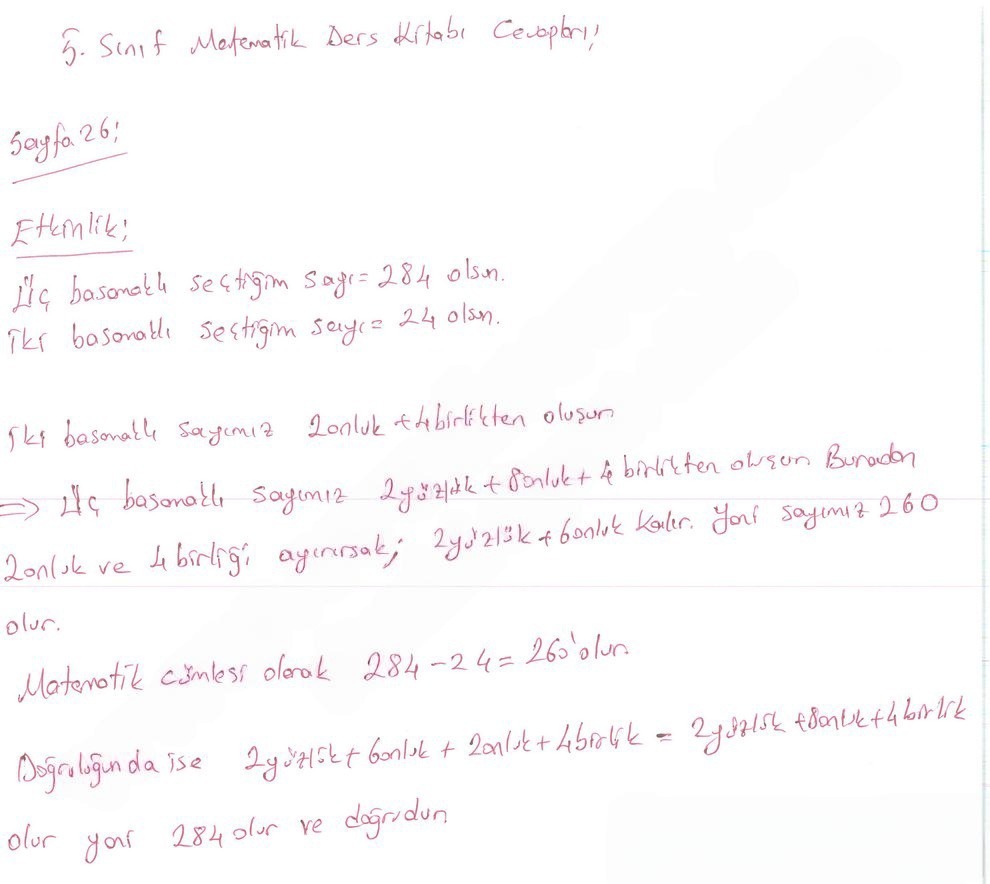 5. Sınıf Matematik Ders Kitabı Cevapları;
Sayfa 26;
Etkinlik;
Üç basamaklı seçtiğim sayı = 284 olsun.
İki basamaklı seçtiğim sayı = 24 olsun.
İki basamaklı sayımız 2onluk + 4birlikten oluşur.
=> Üç basamaklı sayımız 2yüzlük + 8onluk + 4 birlikten oluşur. Buradan
2onluk ve 4 birliği ayırırsak; 2yüzlük + 6onluk kalır. Yani sayımız 260
olur.
Matematik cümlesi olarak 284 - 24 = 260' olur.
Doğruluğunda ise 2yüzlük + 6onluk + 2onluk + 4birlik = 2yüzlük + 8onluk + 4birlik
olur yani 284 olur ve doğrudur.